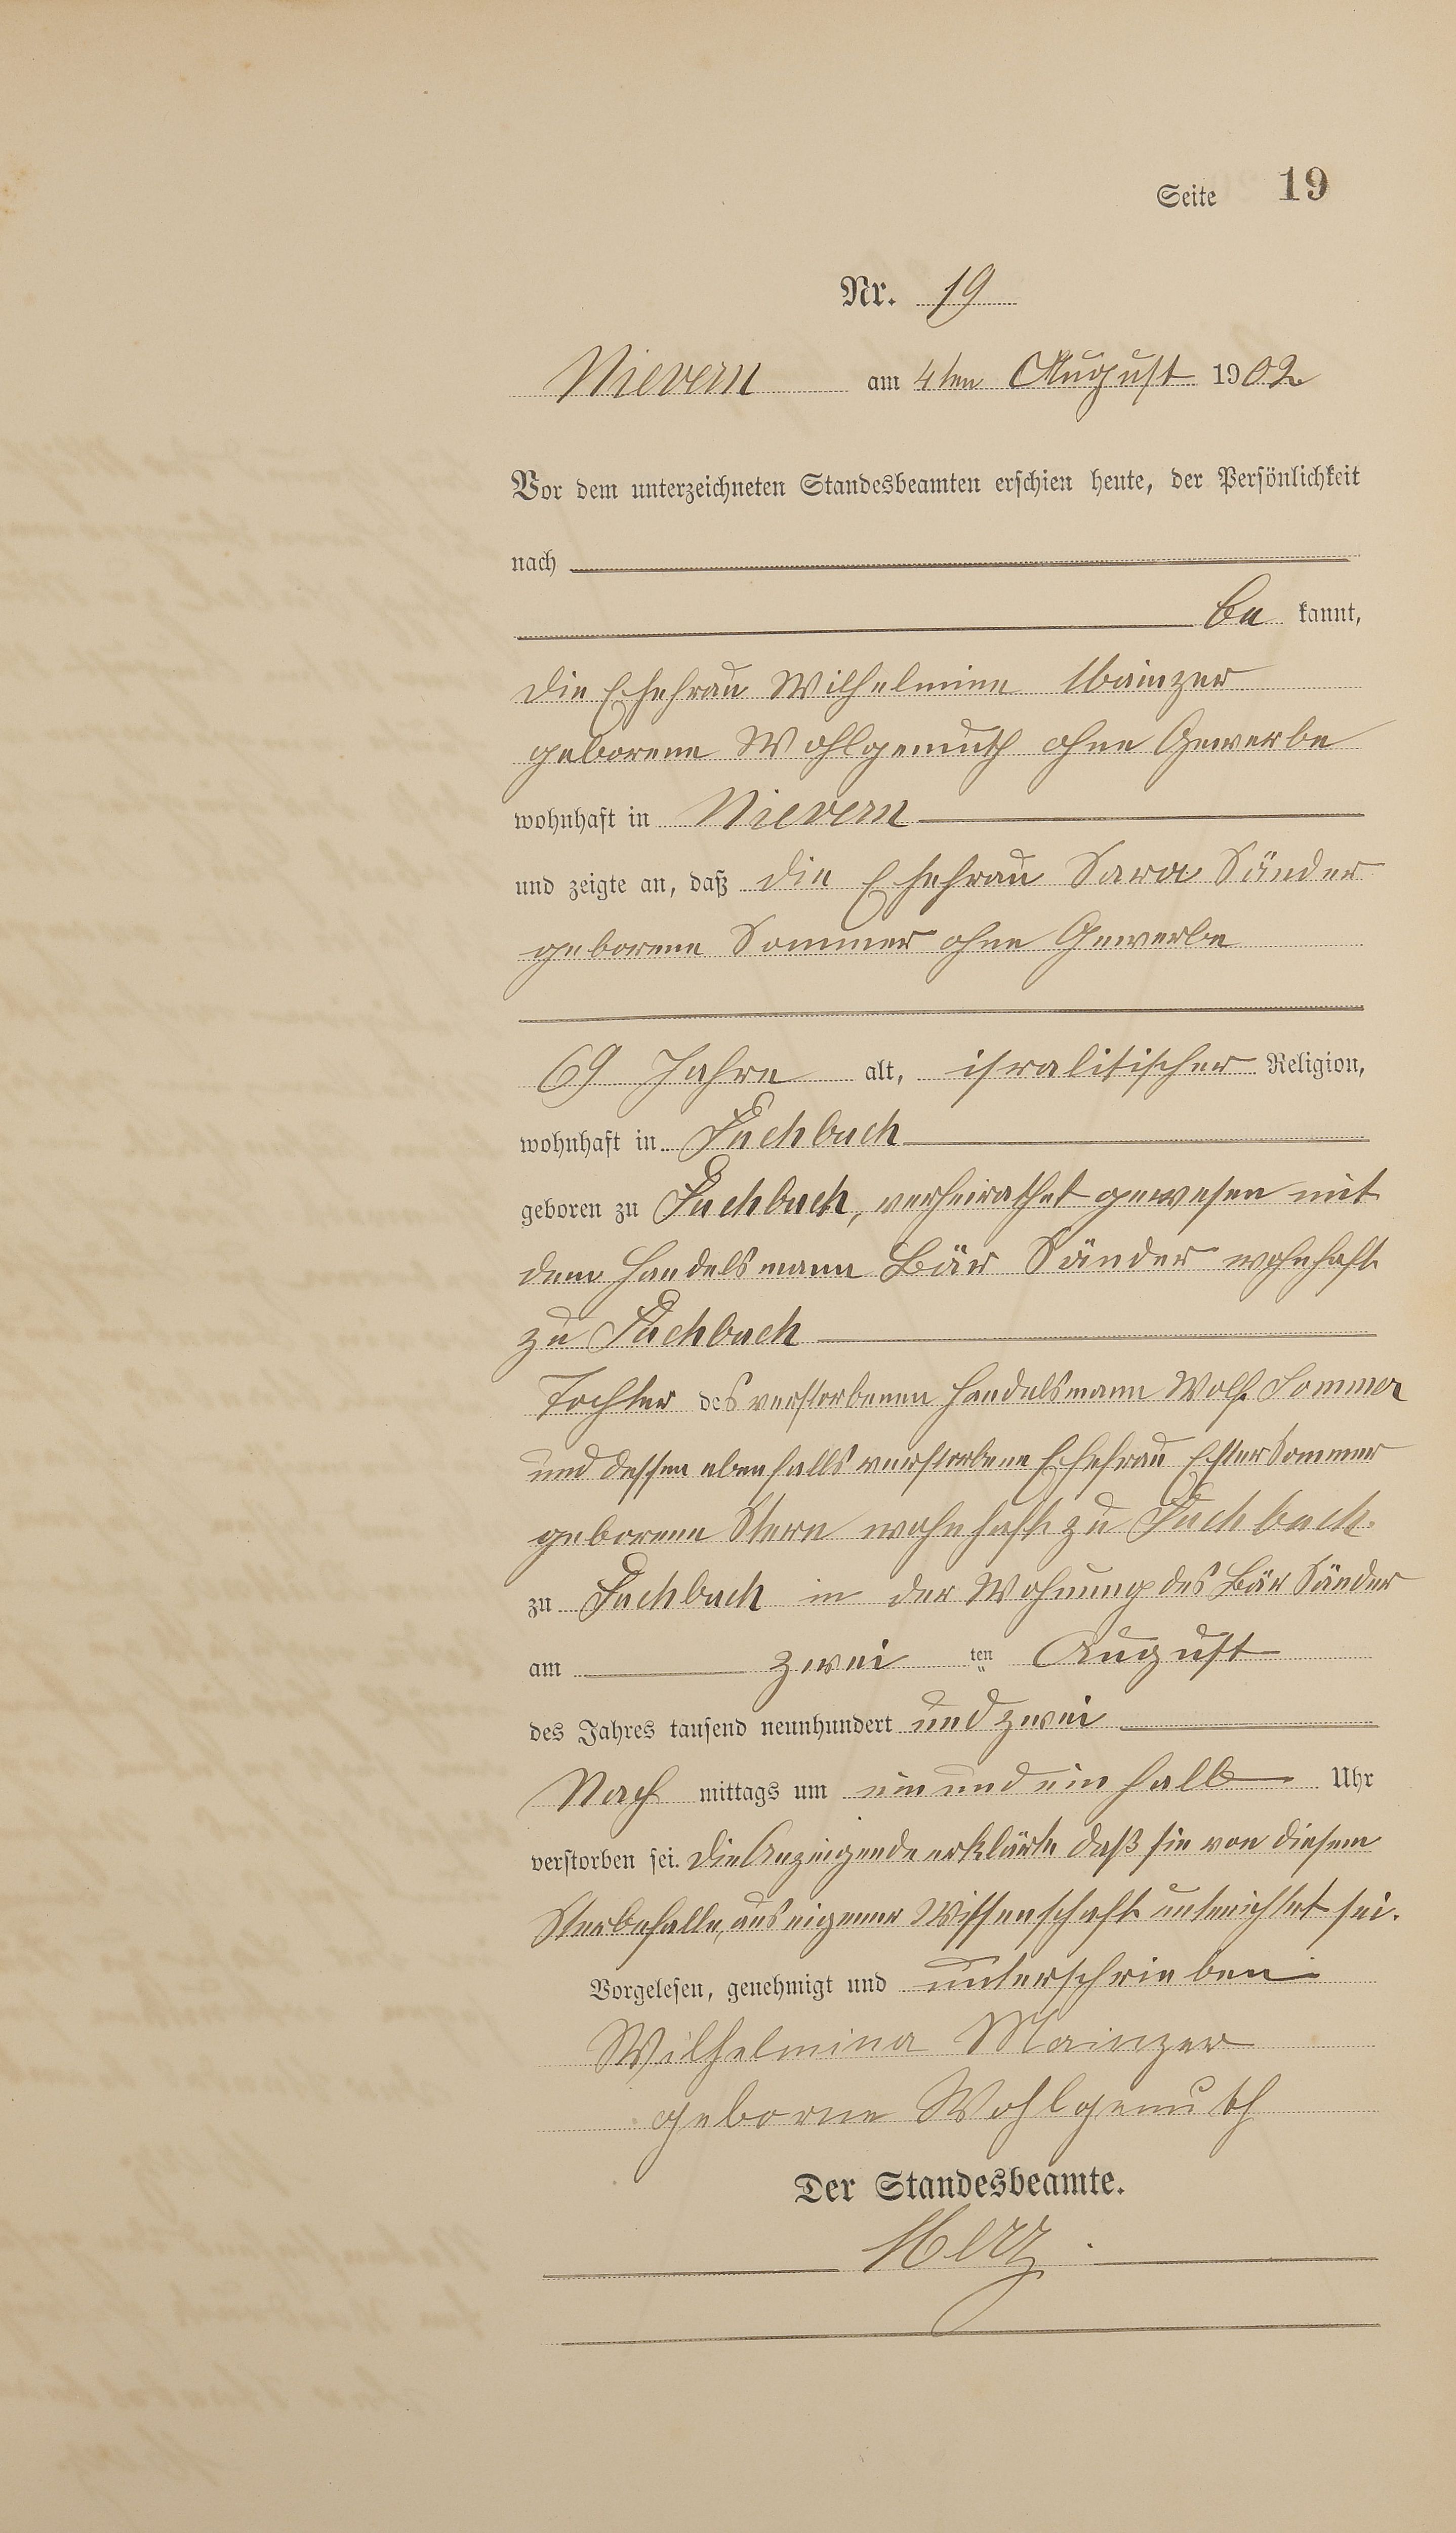 Seite 19
Nr. 19
Nievern am 4ten August 1902
Vor dem unterzeichneten Standesbeamten erschien heute, der Persönlichkeit
nach
be kannt,
die Ehefrau Wilhelmine Mainzer
geborene Wohlgemuth ohne Gewerbe
wohnhaft in Nievern
und zeigte an, daß die Ehefrau Sara Sänder
geborene Sommer ohne Gewerbe
69 Jahre alt, isralitischer Religion,
wohnhaft in Fachbach
geboren zu Fachbach, verheirathet gewesen mit
dem Handelsmann Bär Sänder wohnhaft
zu Fachbach
Tochter des verstorbenen Handelsmann Wolf Sommer
und dessen ebenfalls verstorbene Ehefrau Ester Sommer
geborene Stern wohnhaft zu Fachbach.
zu Fachbach in der Wohnung des Bär Sänder
am zwei ten August
des Jahres tausend neunhundert und zwei
Nach mittags um ein und ein halb Uhr
verstorben sei. Die Anzeigende erklärte daß sie von diesem
Sterbefalle, aus eigener Wissenschaft unterichtet sei.
Vorgelesen, genehmigt und unterschrieben
Wilhelmina Mainzer
geborne Wohlgemuth
Der Standesbeamte.
Merz